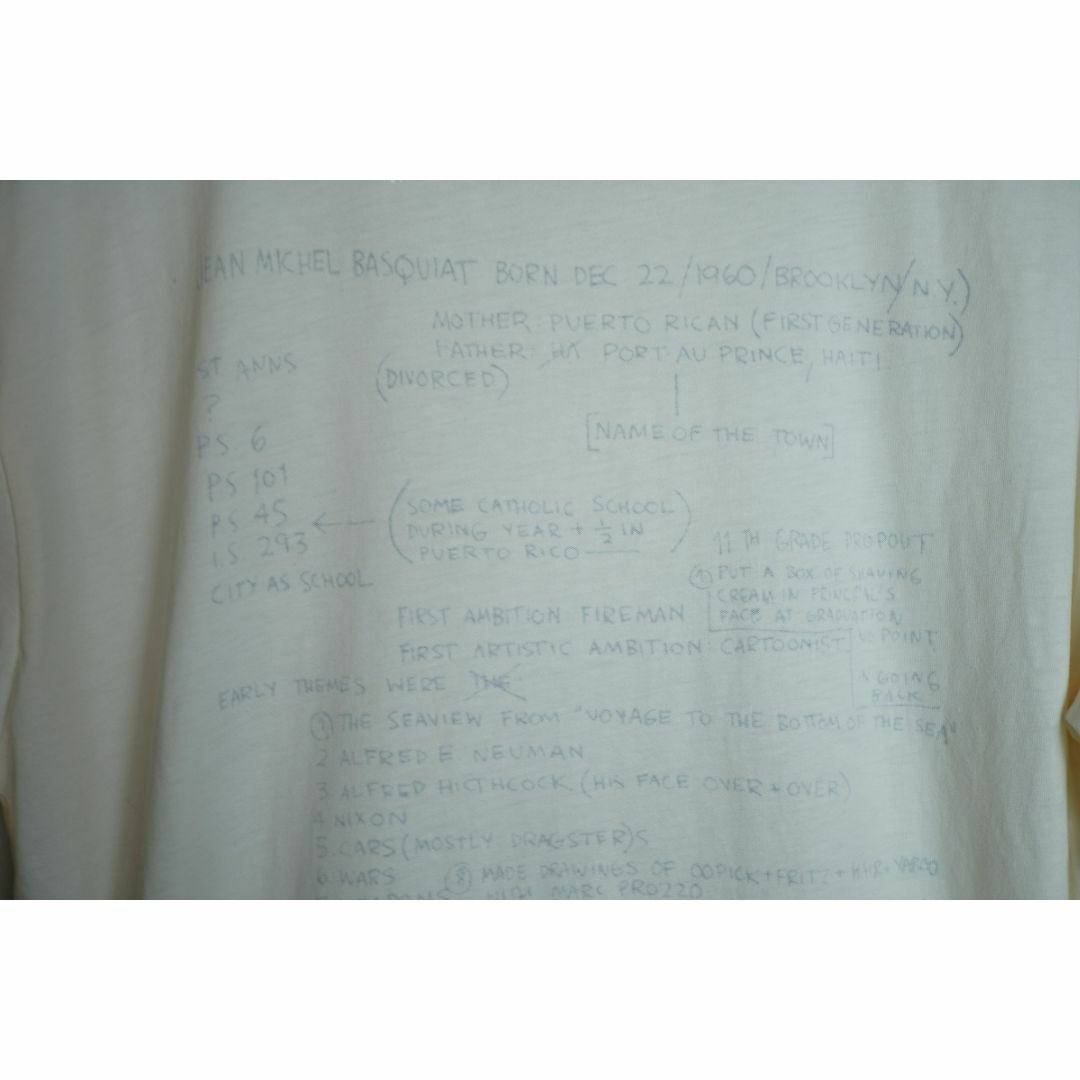 JEAN MICHEL BASQUIAT BORN DEC 22/1960/BROOKLYN/N.Y.)
MOTHER: PUERTO RICAN (FIRST GENERATION)
FATHER: PORT AU PRINCE, HAITI
(DIVORCED)
[NAME OF THE TOWN]
ST ANNS
?
PS 6
PS 101
PS 45
I.S. 293
CITY AS SCHOOL
(SOME CATHOLIC SCHOOL
DURING YEAR + 1/2 IN
PUERTO RICO)
11 TH GRADE DROPOUT
PUT A BOX OF SHAVING
CREAM IN PRINCIPAL'S
FACE AT GRADUATION
POINT
GOING
BACK
FIRST AMBITION FIREMAN
FIRST ARTISTIC AMBITION: CARTOONIST
EARLY THEMES WERE THE
1 THE SEAVIEW FROM "VOYAGE TO THE BOTTOM OF THE SEA"
2 ALFRED E. NEUMAN
3 ALFRED HICTHCOCK (HIS FACE OVER + OVER)
4 NIXON
5. CARS (MOSTLY DRAGSTER)S
6 WARS
8 MADE DRAWINGS OF + FRITZ +
WITH MARC PROZZO